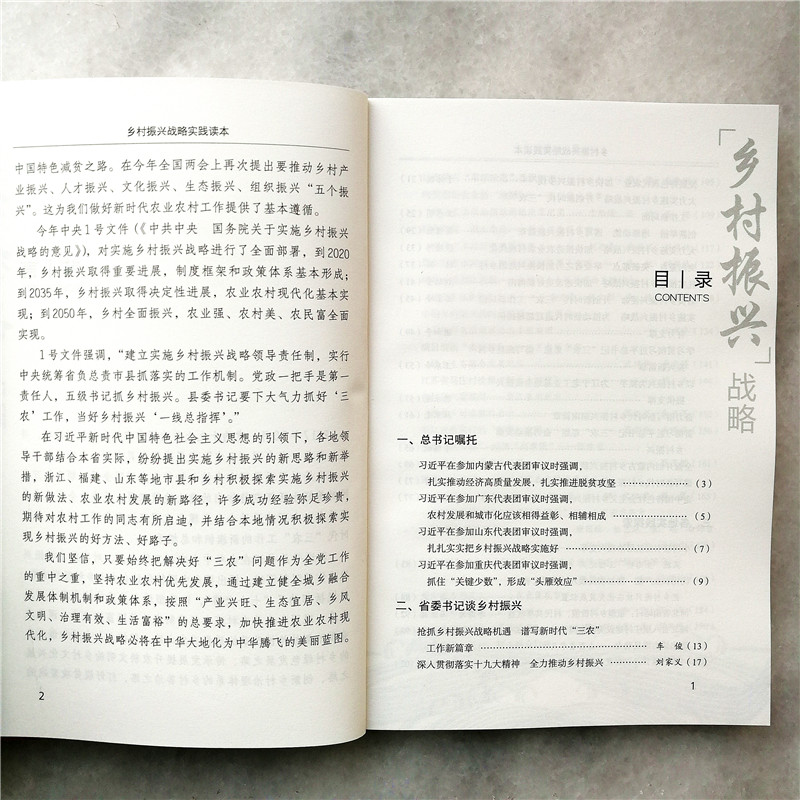 乡村振兴战略实践读本
中国特色减贫之路。在今年全国两会上再次提出要推动乡村产
业振兴、人才振兴、文化振兴、生态振兴、组织振兴“五个振
兴”。这为我们做好新时代农业农村工作提供了基本遵循。
今年中央1号文件(《中共中央 国务院关于实施乡村振兴
战略的意见》),对实施乡村振兴战略进行了全面部署,到2020
年,乡村振兴取得重要进展,制度框架和政策体系基本形成;
到2035年,乡村振兴取得决定性进展,农业农村现代化基本实
现;到2050年,乡村全面振兴,农业强、农村美、农民富全面
实现。
1号文件强调,“建立实施乡村振兴战略领导责任制,实行
中央统筹省负总责市县抓落实的工作机制。党政一把手是第一
责任人,五级书记抓乡村振兴。县委书记要下大气力抓好‘三
农’工作,当好乡村振兴‘一线总指挥’。”
在习近平新时代中国特色社会主义思想的引领下,各地领
导干部结合本省实际,纷纷提出实施乡村振兴的新思路和新举
措,浙江、福建、山东等地市县和乡村积极探索实施乡村振兴
的新做法、农业农村发展的新路径,许多成功经验弥足珍贵,
期待对农村工作的同志有所启迪,并结合本地情况积极探索实
现乡村振兴的好方法、好路子。
我们坚信,只要始终把解决好“三农”问题作为全党工作
的重中之重,坚持农业农村优先发展,通过建立健全城乡融合
发展体制机制和政策体系,按照“产业兴旺、生态宜居、乡风
文明、治理有效、生活富裕”的总要求,加快推进农业农村现
代化,乡村振兴战略必将在中华大地化为中华腾飞的美丽蓝图。
2
「乡村振兴」
战略
目|录
CONTENTS
一、总书记嘱托
习近平在参加内蒙古代表团审议时强调,
扎实推动经济高质量发展,扎实推进脱贫攻坚 ………………(3)
习近平在参加广东代表团审议时强调,
农村发展和城市化应该相得益彰、相辅相成 ………………(5)
习近平在参加山东代表团审议时强调,
扎扎实实把乡村振兴战略实施好 ………………………(7)
习近平在参加重庆代表团审议时强调,
抓住“关键少数”,形成“头雁效应” ……………………(9)
二、省委书记谈乡村振兴
抢抓乡村振兴战略机遇 谱写新时代“三农”
工作新篇章 ……………………………… 车 俊(13)
深入贯彻落实十九大精神 全力推动乡村振兴 ………… 刘家义(17)
1